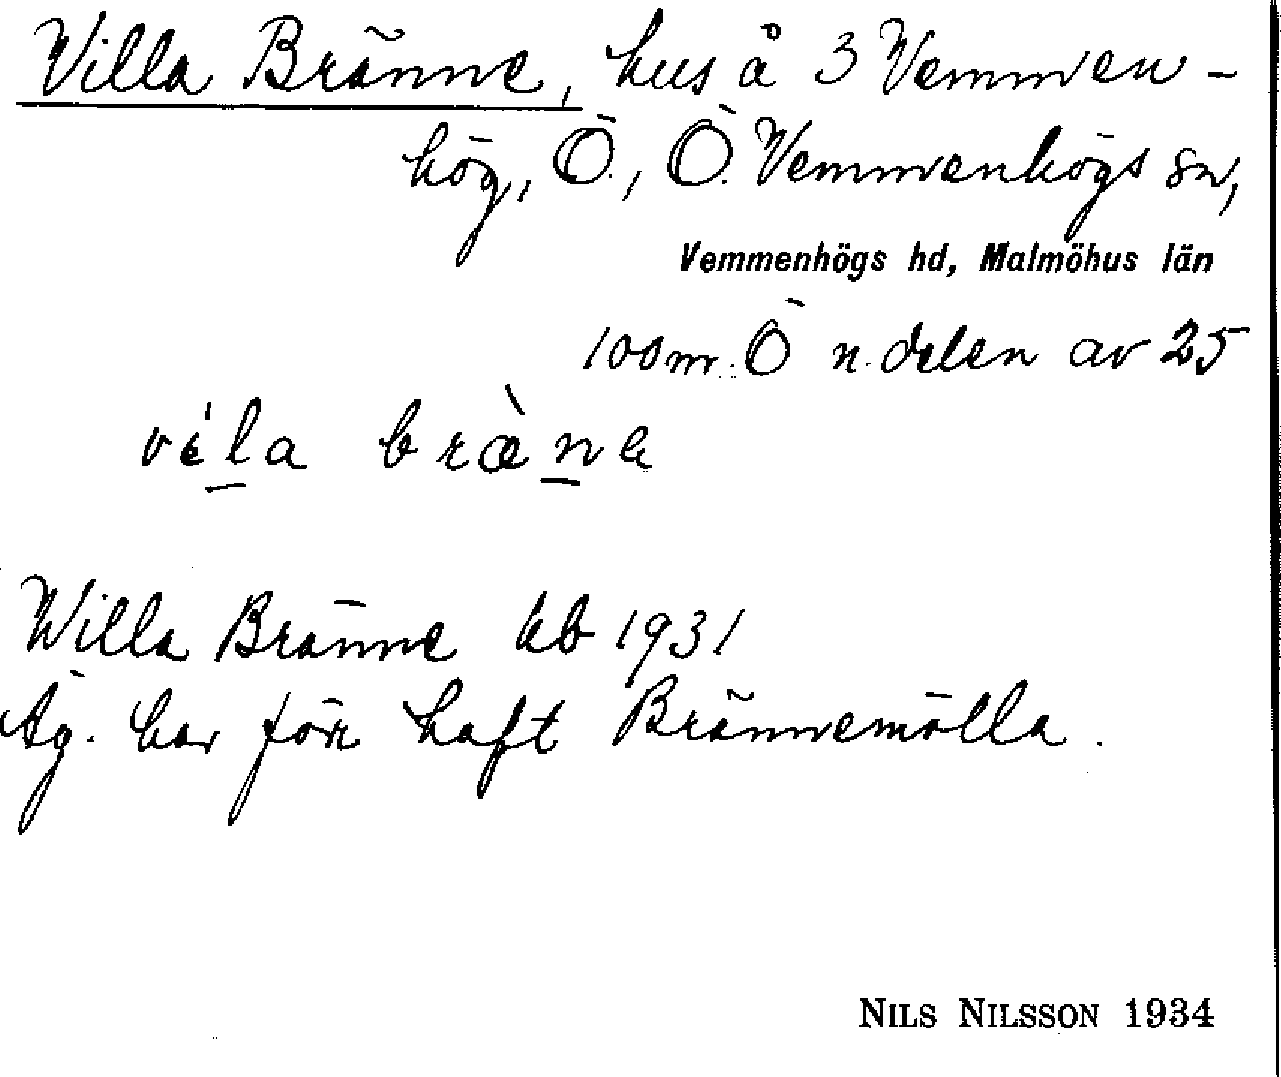 Villa Bränne, hus å 3 Vemmen-
hög, Ö., Ö. Vemmenhögs sn,
Vemmenhögs hd, Malmöhus län
100 m. Ö n. delen av 25
véla bræ̀na
Willa Bränne kb 1931
Äg. har förr haft Brännemölla.
NILS NILSSON 1934